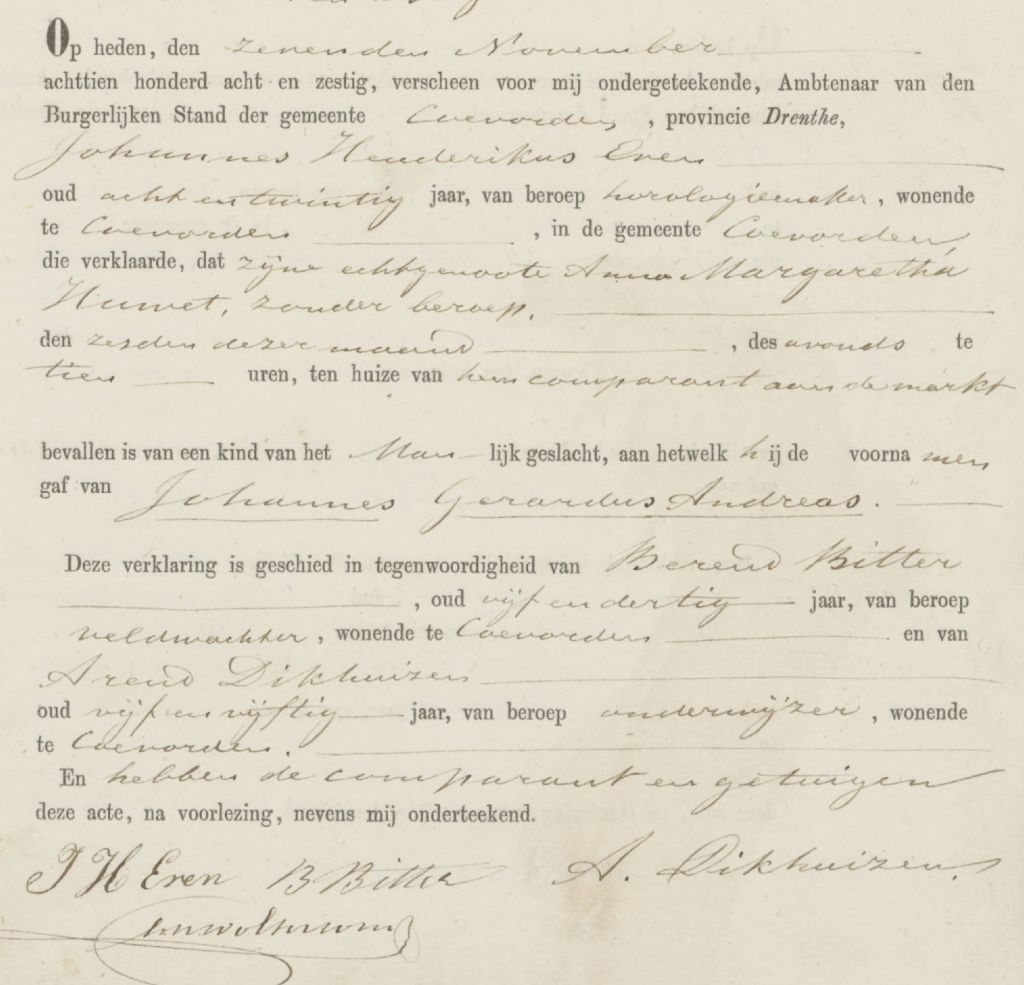 Op heden, den zevenden November
achttien honderd acht en zestig, verscheen voor mij ondergeteekende, Ambtenaar van den
Burgerlijken Stand der gemeente Coevorden, provincie Drenthe,
Johannes Henderikus Eren
oud acht en twintig jaar, van beroep horologiemaker, wonende
te Coevorden, in de gemeente Coevorden,
die verklaarde, dat zijne echtgenoote Anna Margaretha
Huwet, zonder beroep,
den zesden dezer maand, des avonds te
tien uren, ten huize van hem comparant aan de markt
bevallen is van een kind van het Manlijk geslacht, aan hetwelk hij de voornamen
gaf van Johannes Gerardus Andreas.
Deze verklaring is geschied in tegenwoordigheid van Berend Bitter
, oud vijf en dertig jaar, van beroep
veldwachter, wonende te Coevorden en van
Arend Dikhuizen
oud vijf en vijftig jaar, van beroep onderwijzer, wonende
te Coevorden.
En hebben de comparant en getuigen
deze acte, na voorlezing, nevens mij onderteekend.
J H Eren B Bitter A. Dikhuizen